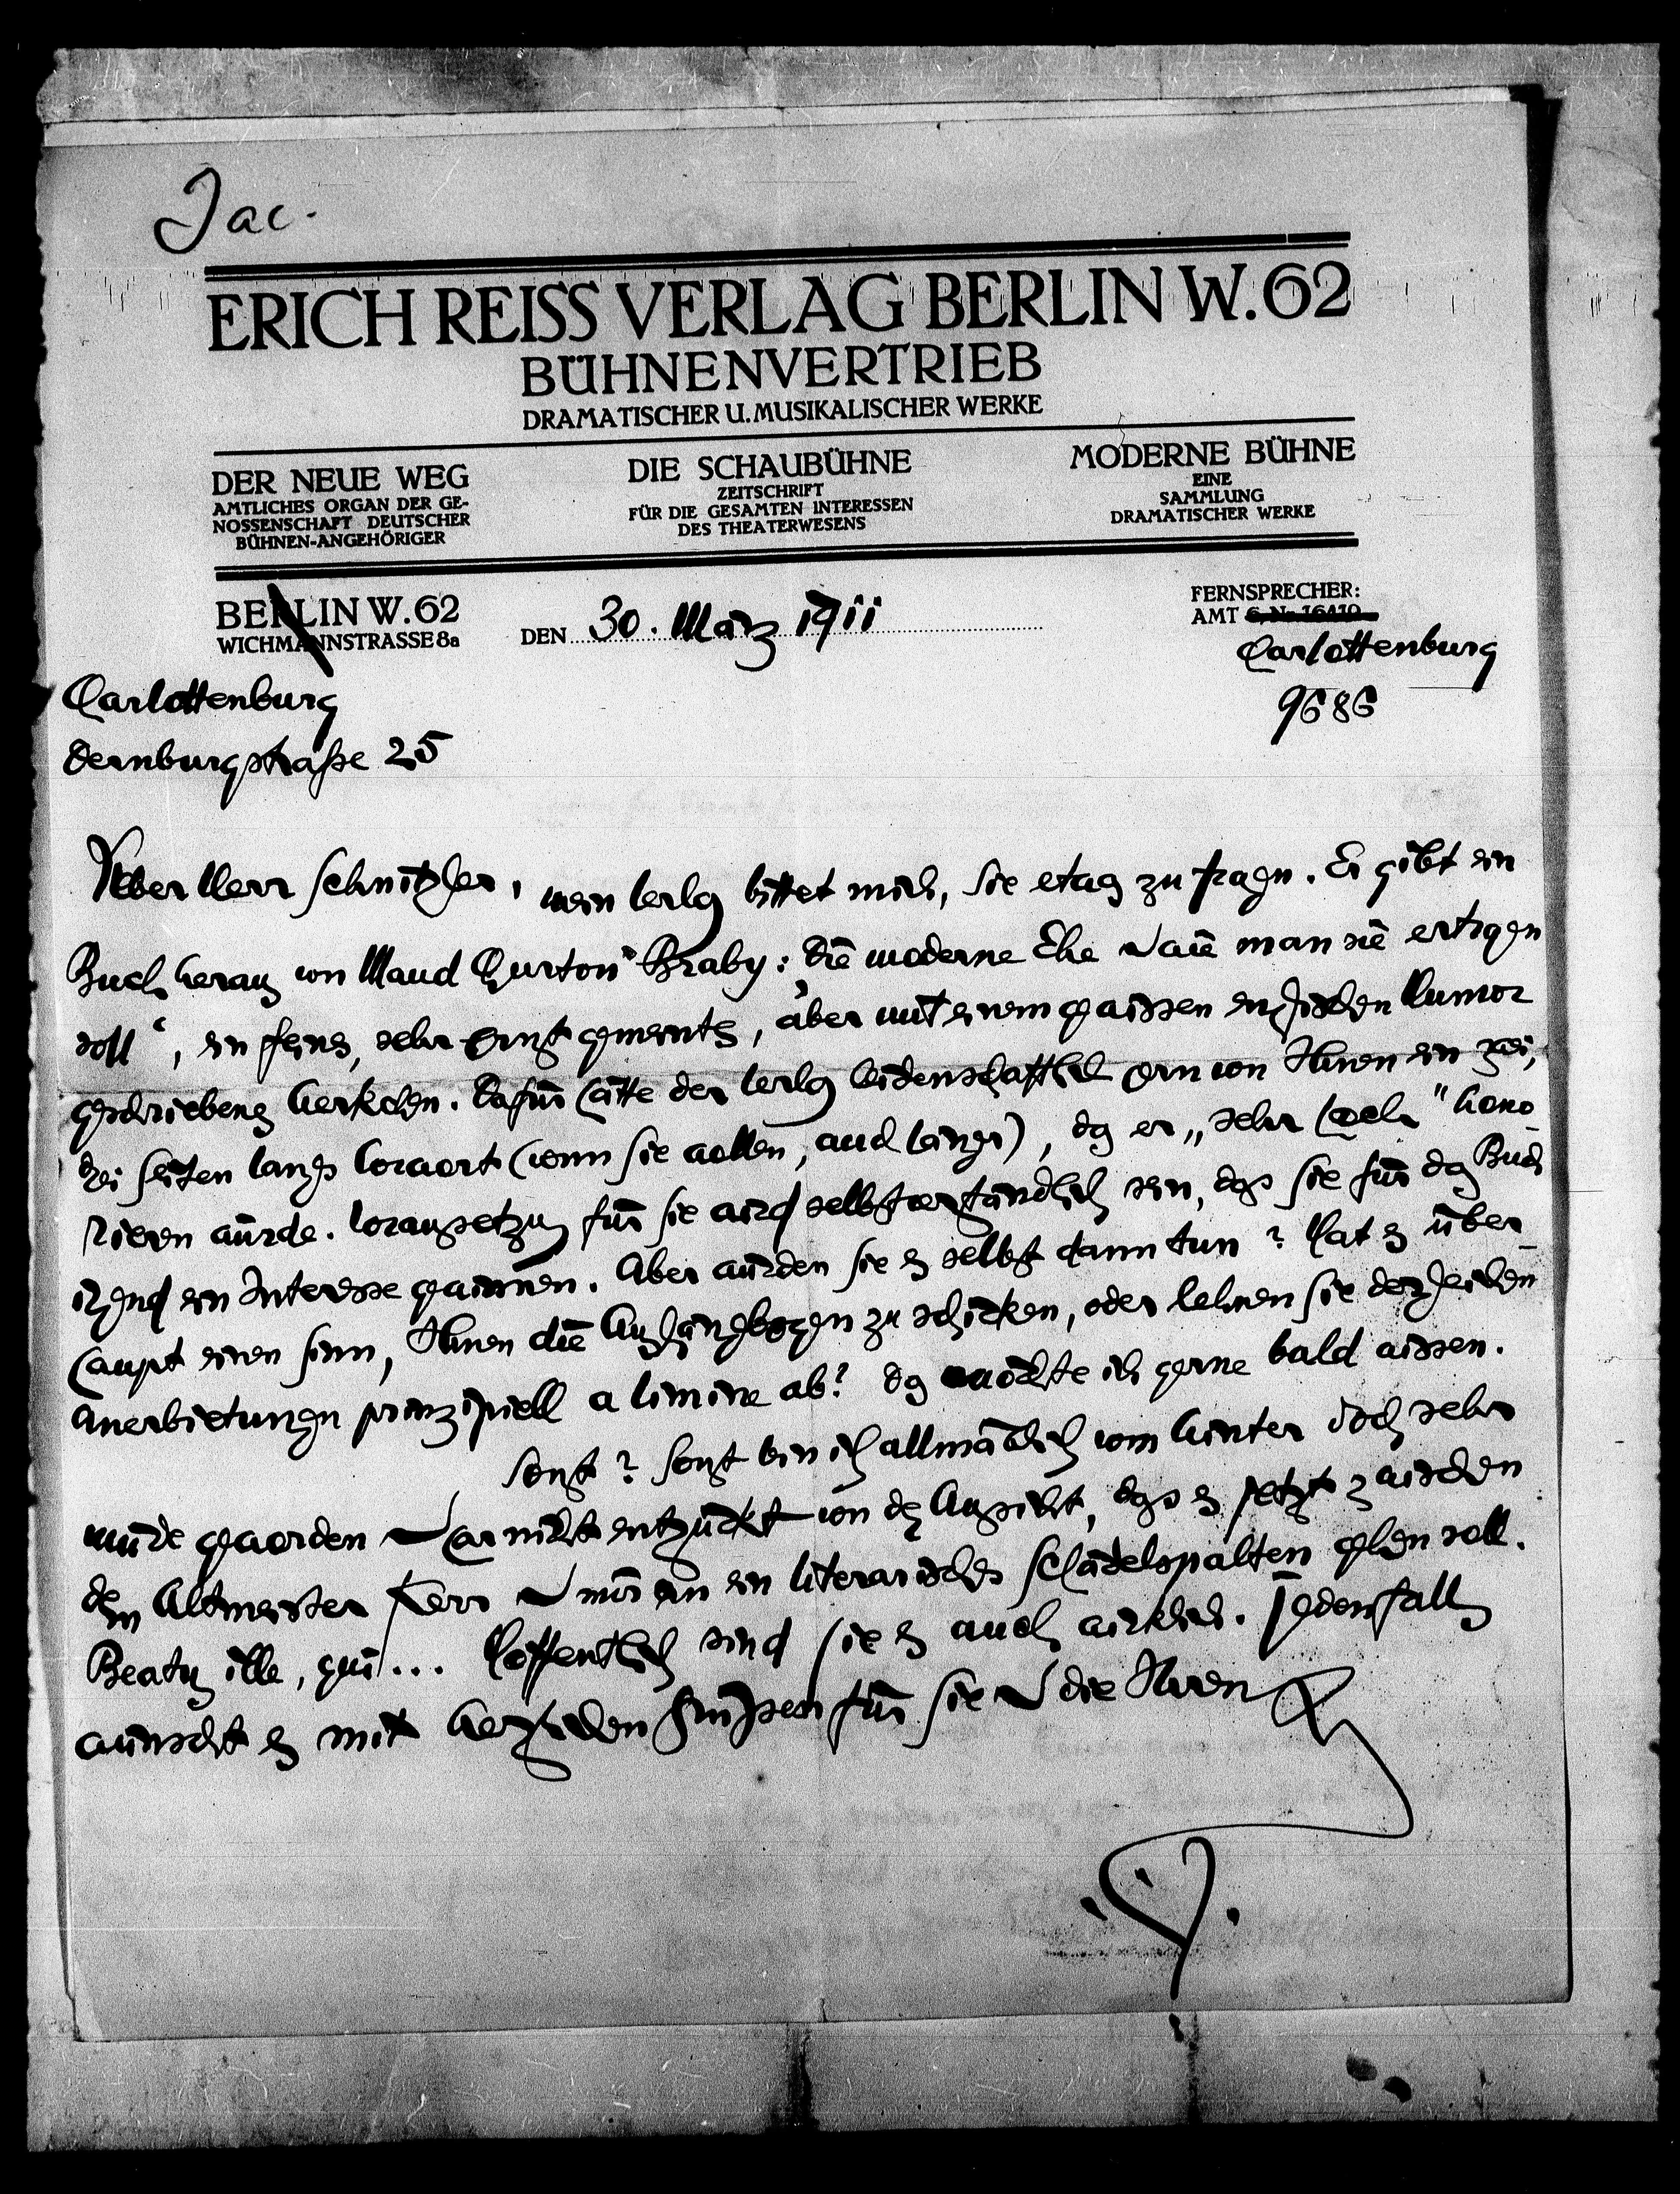 Jac.
ERICH REISS VERLAG BERLIN W. 62
BÜHNENVERTRIEB
DRAMATISCHER U. MUSIKALISCHER WERKE
DER NEUE WEG
AMTLICHES ORGAN DER GE-
NOSSENSCHAFT DEUTSCHER
BÜHNEN-ANGEHÖRIGER
DIE SCHAUBÜHNE
ZEITSCHRIFT
FÜR DIE GESAMTEN INTERESSEN
DES THEATERWESENS
MODERNE BÜHNE
EINE
SAMMLUNG
DRAMATISCHER WERKE
BERLIN W. 62
WICHMANNSTRASSE 8a
DEN 30. März 1911
FERNSPRECHER:
AMT 6, Nr. 16410
Charlottenburg
9686
Charlottenburg
Dernburgstraße 25
Lieber Herr Schnitzler, mein Verlag bittet mich, Sie etwas zu fragen. Er gibt ein
Buch heraus von Maud Churton Braby: „Die moderne Ehe und wie man sie ertragen
soll“, ein feines, sehr ernst gemeintes, aber mit einem gewissen englischen Humor
geschriebenes Werkchen. Dafür hätte der Verlag leidenschaftlich gern von Ihnen ein zwei,
drei Seiten langes Vorwort (wenn Sie wollen, auch länger), das er „sehr hoch“ hono-
rieren würde. Voraussetzung für Sie wird selbstverständlich sein, dass Sie für das Buch
irgend ein Interesse gewinnen. Aber würden Sie es selbst dann tun? Hat es über-
haupt einen Sinn, Ihnen die Aushängebogen zu schicken, oder lehnen Sie derzeichen
Anerbietungen prinzipiell a limine ab? Das möchte ich gerne bald wissen.
Sonst? Sonst bin ich allmählich vom Winter doch sehr
müde geworden und gar nicht entzückt von der Aussicht, dass es jetzt zwischen
dem Altmeister Kerr und mir an ein literarisches Schädelspalten gehen soll.
Beatus ille, qui... Hoffentlich sind Sie es auch wirklich. Jedenfalls
wünscht es mit herzlichen Grüßen für Sie und die Ihren